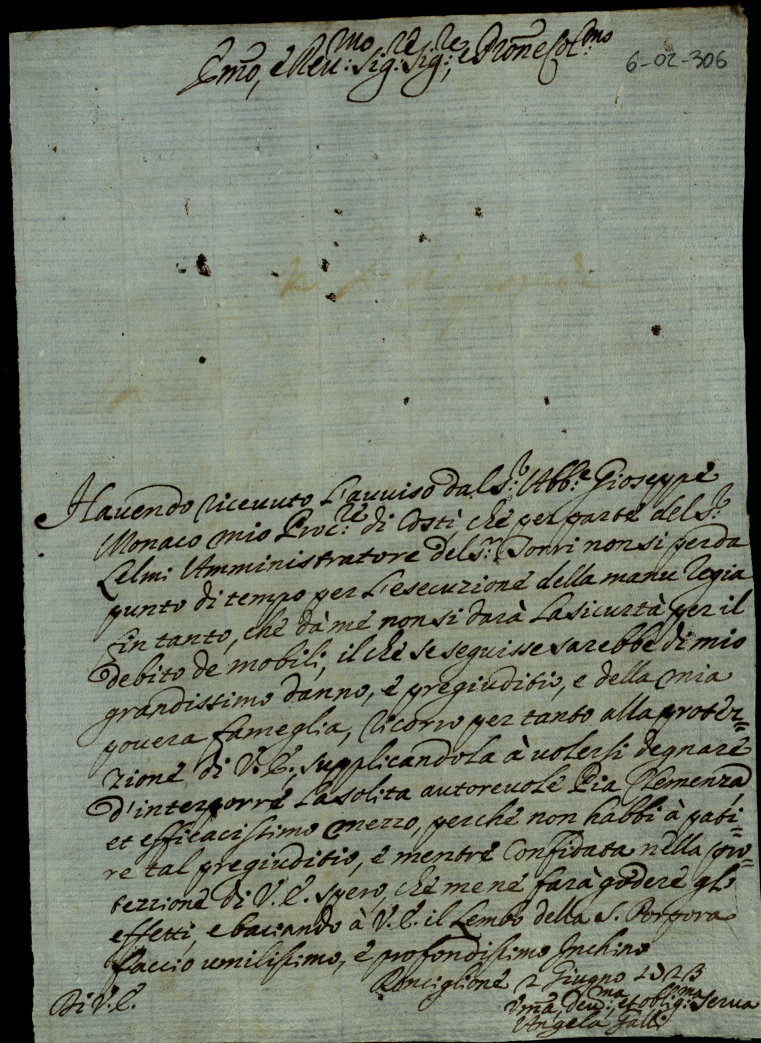 Emo, e Reu:mo Sig:re Sig:re, e Prone Col:mo
6-02-306
Hauendo riceuuto l'auuiso dal S.r Abb.e Gioseppe
Monaco mio Proc:re di Costì che per parte del S.r
Lelmi Amministratore del S.r Torri non si perda
punto di tempo per l'esecuzione della manu Regia
fin tanto, che dà me non si darà la sicurtà per il
debito de mobili, il che se seguisse sarebbe di mio
grandissimo danno, e pregiuditio, e della mia
pouera fameglia, ricorro per tanto alla protez=
zione di V.E. supplicandola à uolersi degnare
d'interporre la solita autoreuole Pia Clemenza,
et efficacissimo mezzo, perche non habbi à pati=
re tal pregiuditio, e mentre Confidata nella pro=
tezzione di V.E. spero, che me ne farà godere gl'
effetti, e baciando à V.E. il Lembo della S. Porpora
faccio umilissimo, e profondissimo Inchino
Ronciglione 2 Giugno
Di V.E.
Vma, Deu:ma, et oblig:ma Serua
Angela Galli